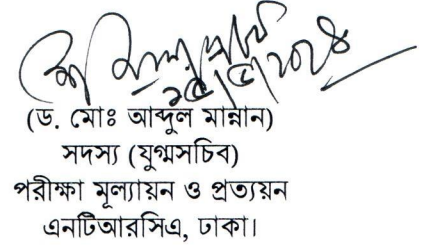 (ড. মোঃ আব্দুল মান্নান)
সদস্য (যুগ্মসচিব)
পরীক্ষা মূল্যায়ন ও প্রত্যয়ন
এনটিআরসিএ, ঢাকা।